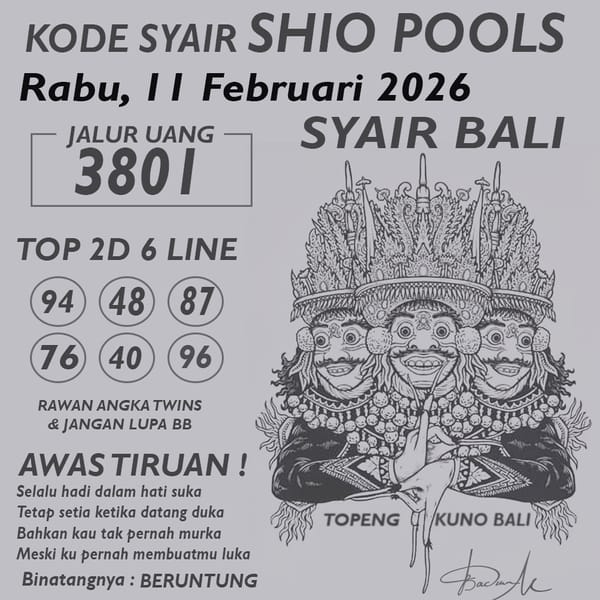 KODE SYAIR SHIO POOLS
Rabu, 11 Februari 2026
SYAIR BALI
JALUR UANG
3801
TOP 2D 6 LINE
94 48 87
76 40 96
RAWAN ANGKA TWINS
& JANGAN LUPA BB
AWAS TIRUAN !
Selalu hadi dalam hati suka
Tetap setia ketika datang duka
Bahkan kau tak pernah murka
Meski ku pernah membuatmu luka
Binatangnya : BERUNTUNG
TOPENG KUNO BALI